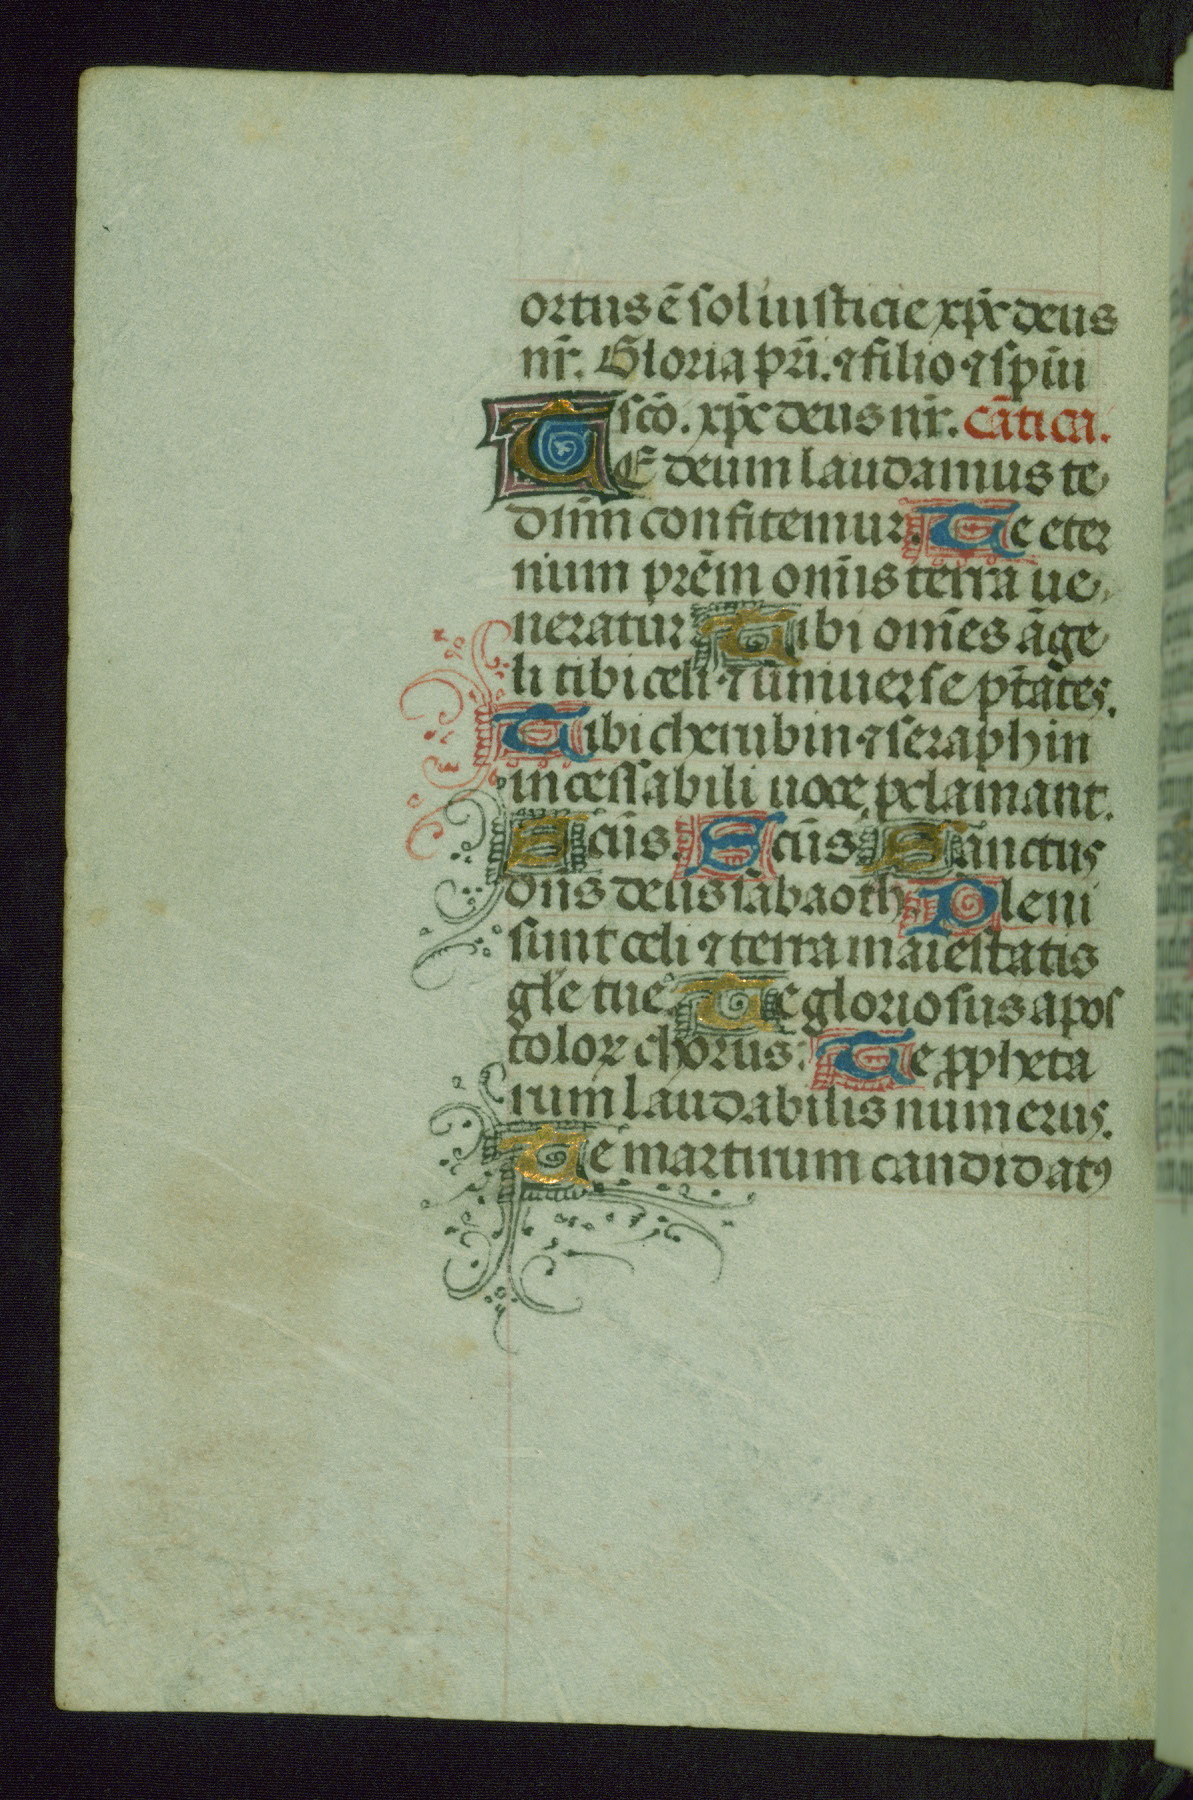 ortus ē sol iusticie xp̄c deus
nr̄. Gloria pr̄i. ⁊ filio ⁊ spūi
scō. xp̄c deus nr̄. cātica.
TE deum laudamus te
dūm confitemur. Te eter
nium prēm om̄is terra ue
neratur Tibi om̄es āge
li tibi celi ⁊ uniuerse ptātes.
Tibi cherubin ⁊ seraphin
in cessabili uoce ꝓclamant.
Scūs. Scūs. Sanctus
dn̄s deus sabaoth. Pleni
sunt celi ⁊ terra maiestatis
gl̄e tue. Te gloriosus apos
toloꝝ chorus. Te ꝓpheta
rum laudabilis numerus.
Te martirum candidatꝰ